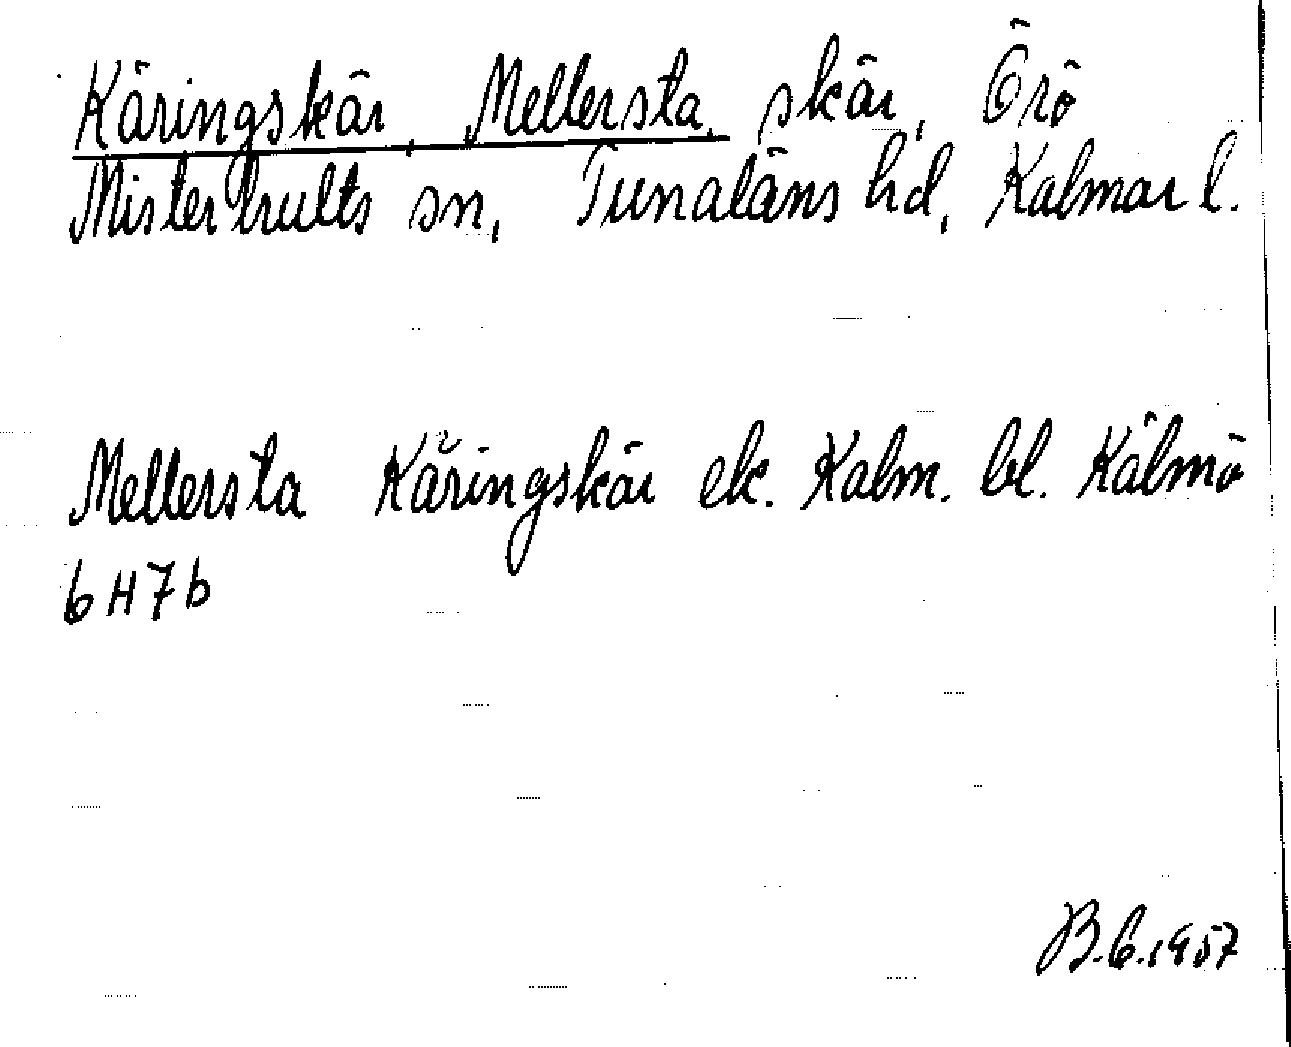 Käringskär, Mellersta, skär, Örö
Misterhults sn, Tunaläns hd, Kalmar l.
Mellersta Käringskär ek. Kalm. bl. Kälmö
6H7b
B.G.1957